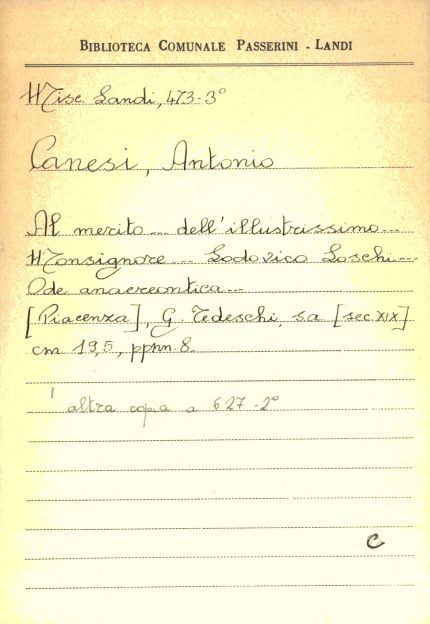 BIBLIOTECA COMUNALE PASSERINI - LANDI
Misc Landi, 473-3°
Canesi, Antonio
Al merito... dell'illustrissimo...
Monsignore... Lodovico Loschi...
Ode anacreontica...
[Piacenza], G. Tedeschi, sa [sec XIX]
cm 19,5, ppnn. 8.
altra copia a 627-2°
C